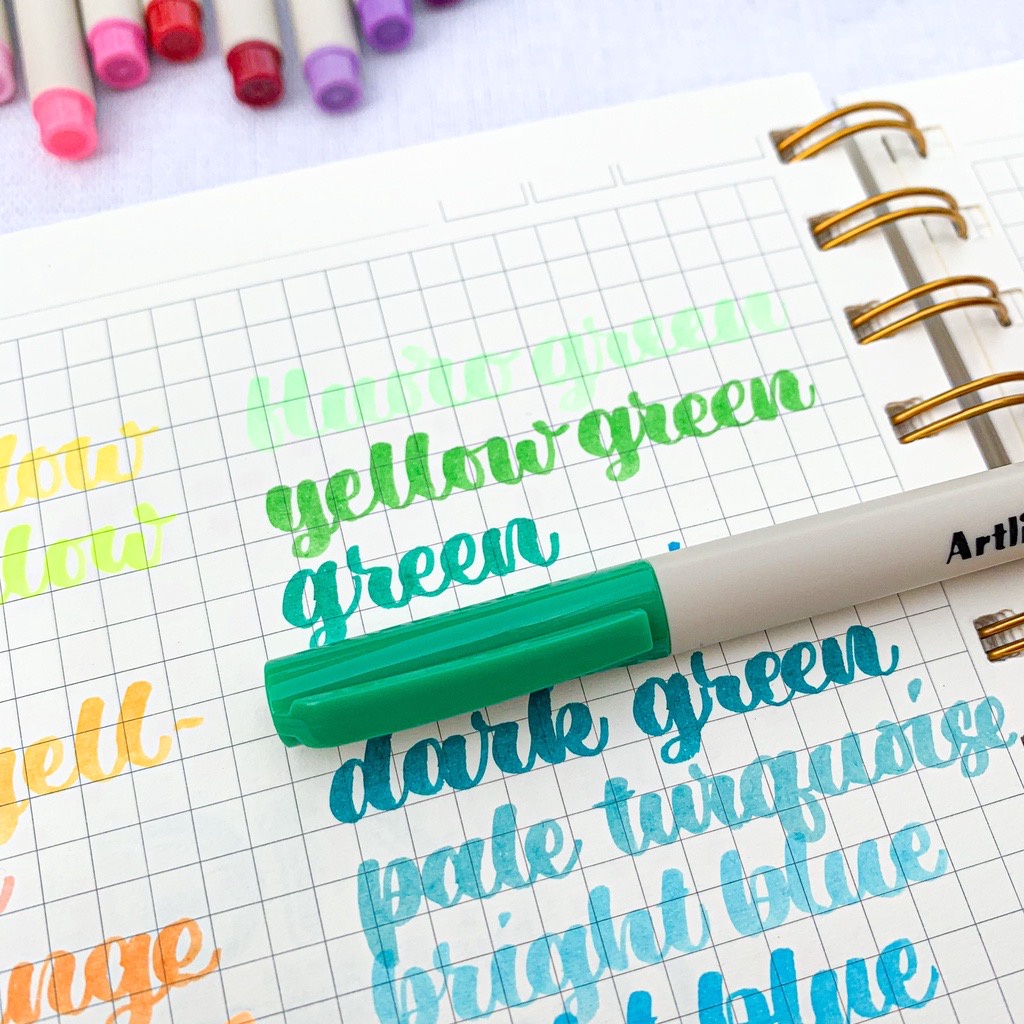 low
llow
yell-
nge
green
yellow green
green
Artli
dark green
pale turquoise
bright blue
t blue